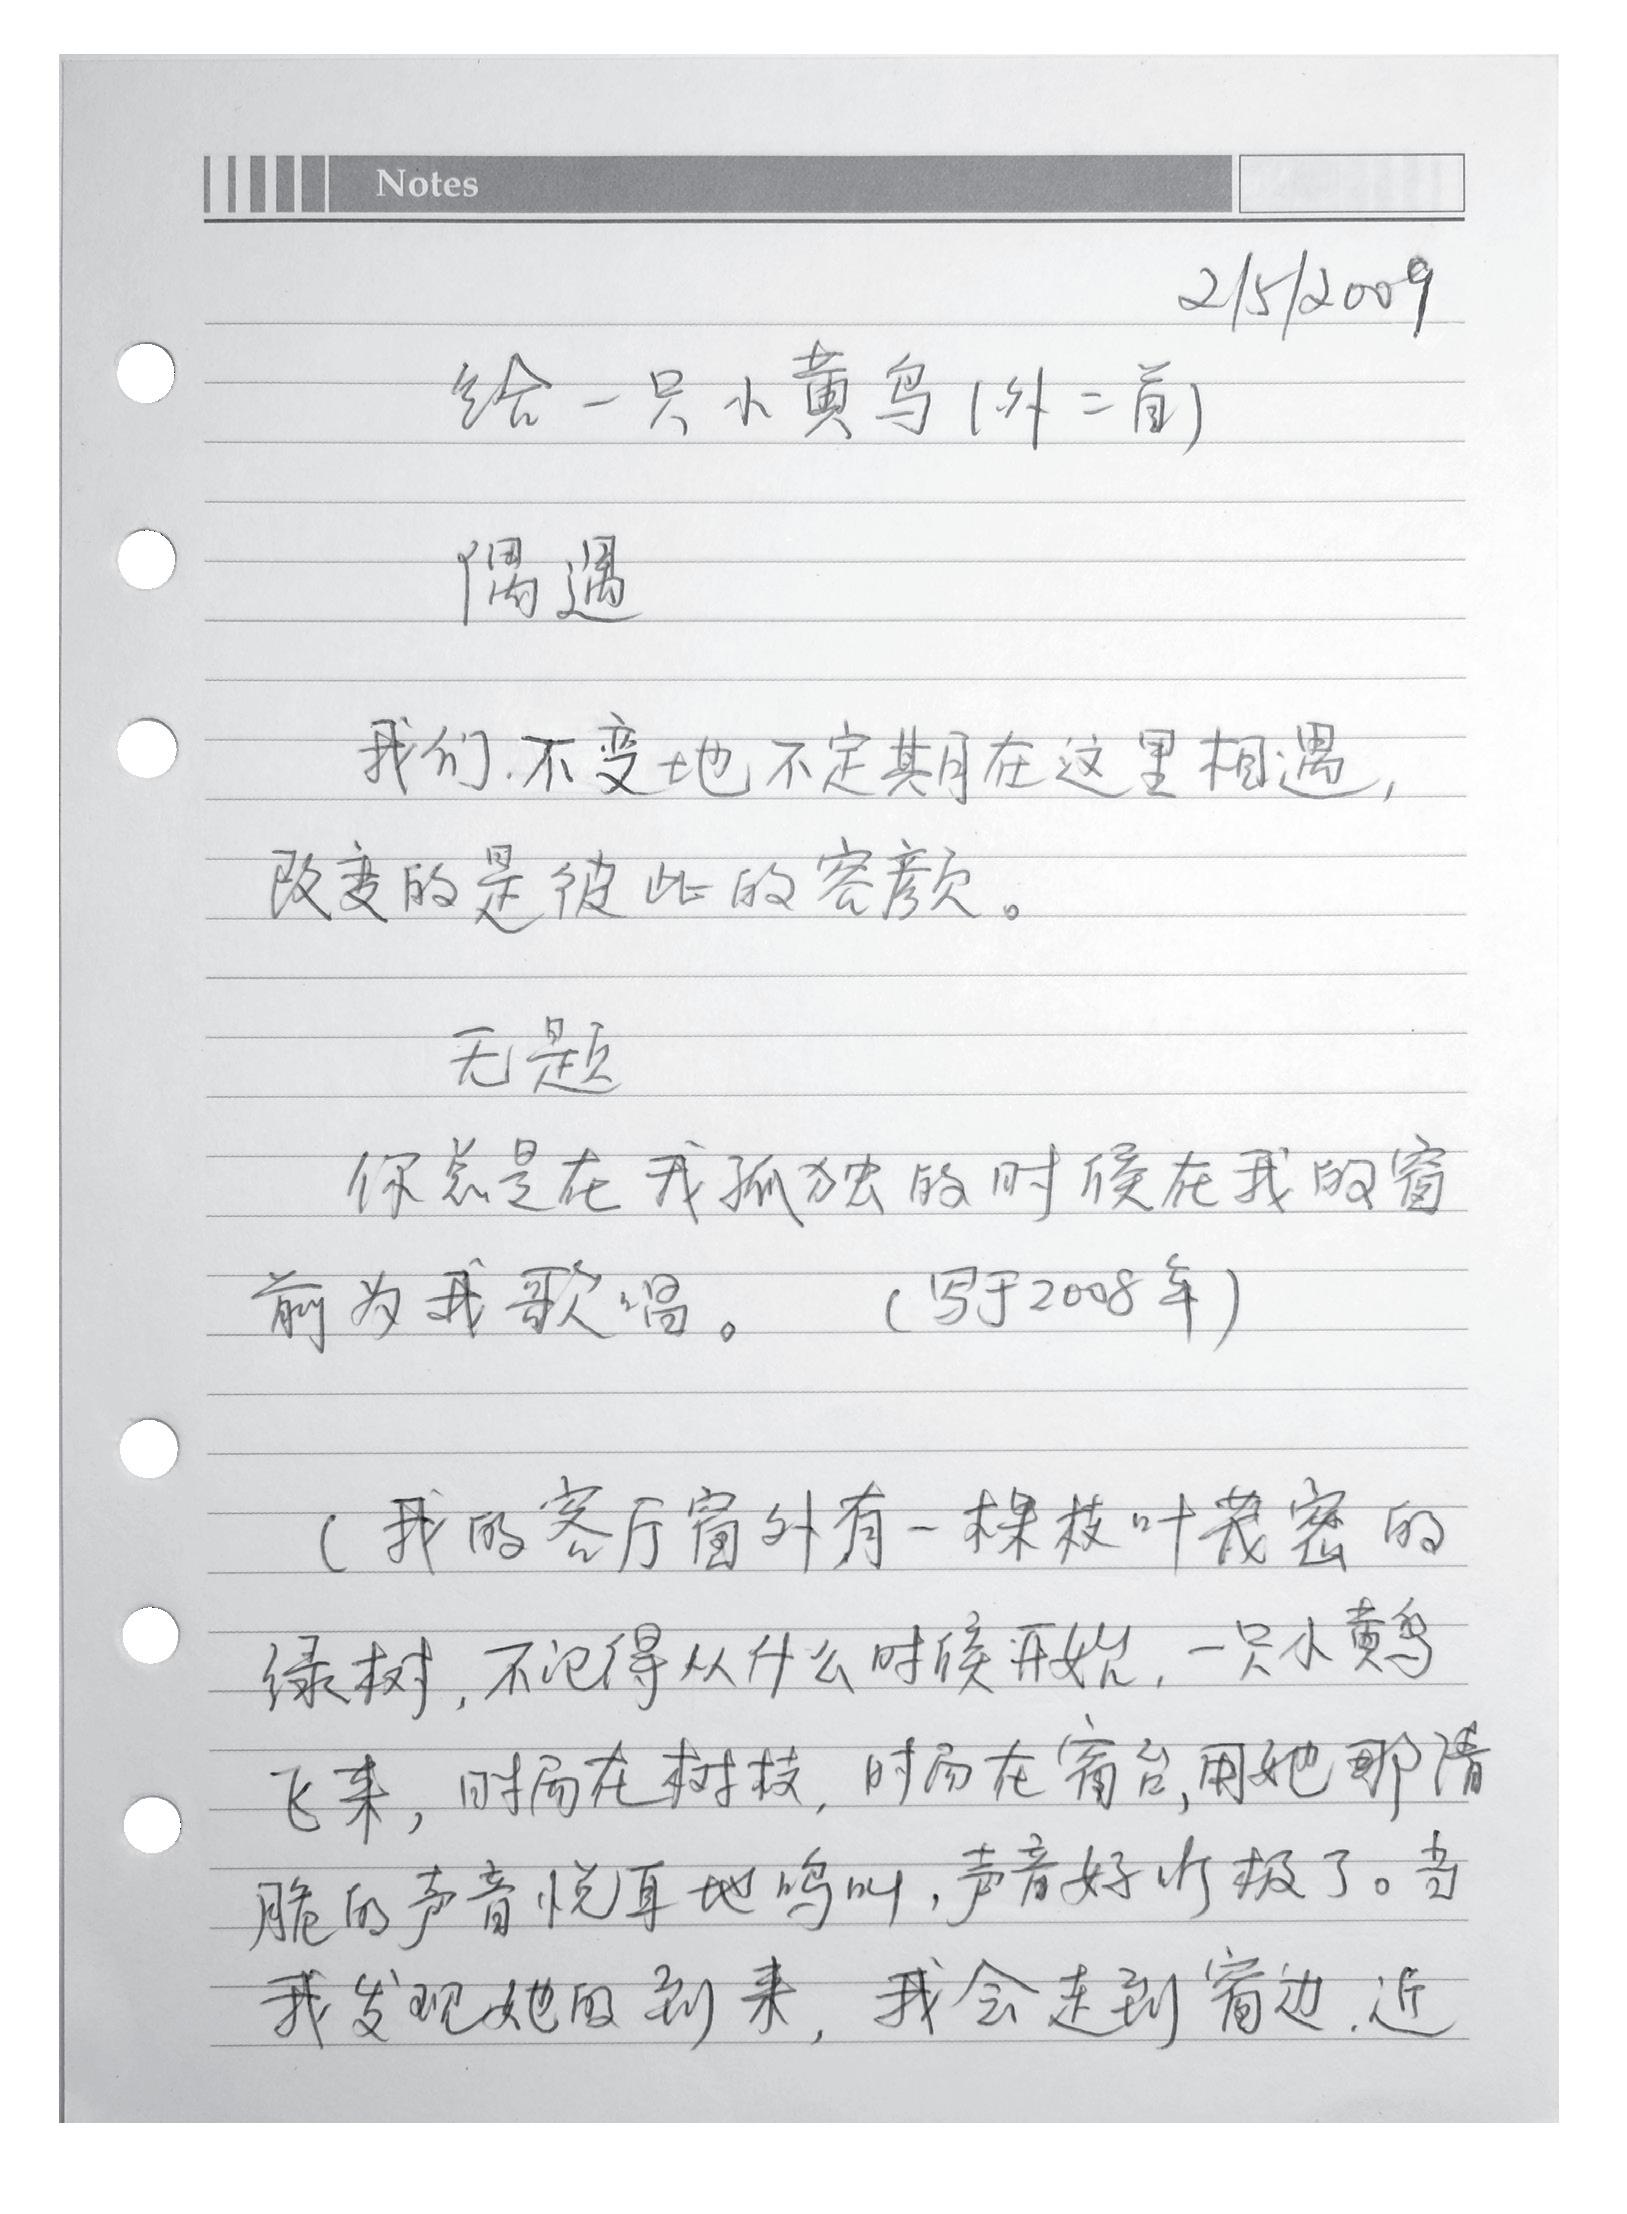 Notes
2/5/2009
给一只小黄鸟(外二首)
偶遇
我们.不变地不定期在这里相遇,
改变的是彼此的容颜。
无题
你总是在我孤独的时候在我的窗
前为我歌唱。 (写于2008年)
(我的客厅窗外有一棵枝叶茂密的
绿树,不记得从什么时候开始,一只小黄鸟
飞来,时而在树枝,时而在窗台,用她那清
脆的声音悦耳地鸣叫,声音好听极了。当
我发现她的到来,我会走到窗边.近